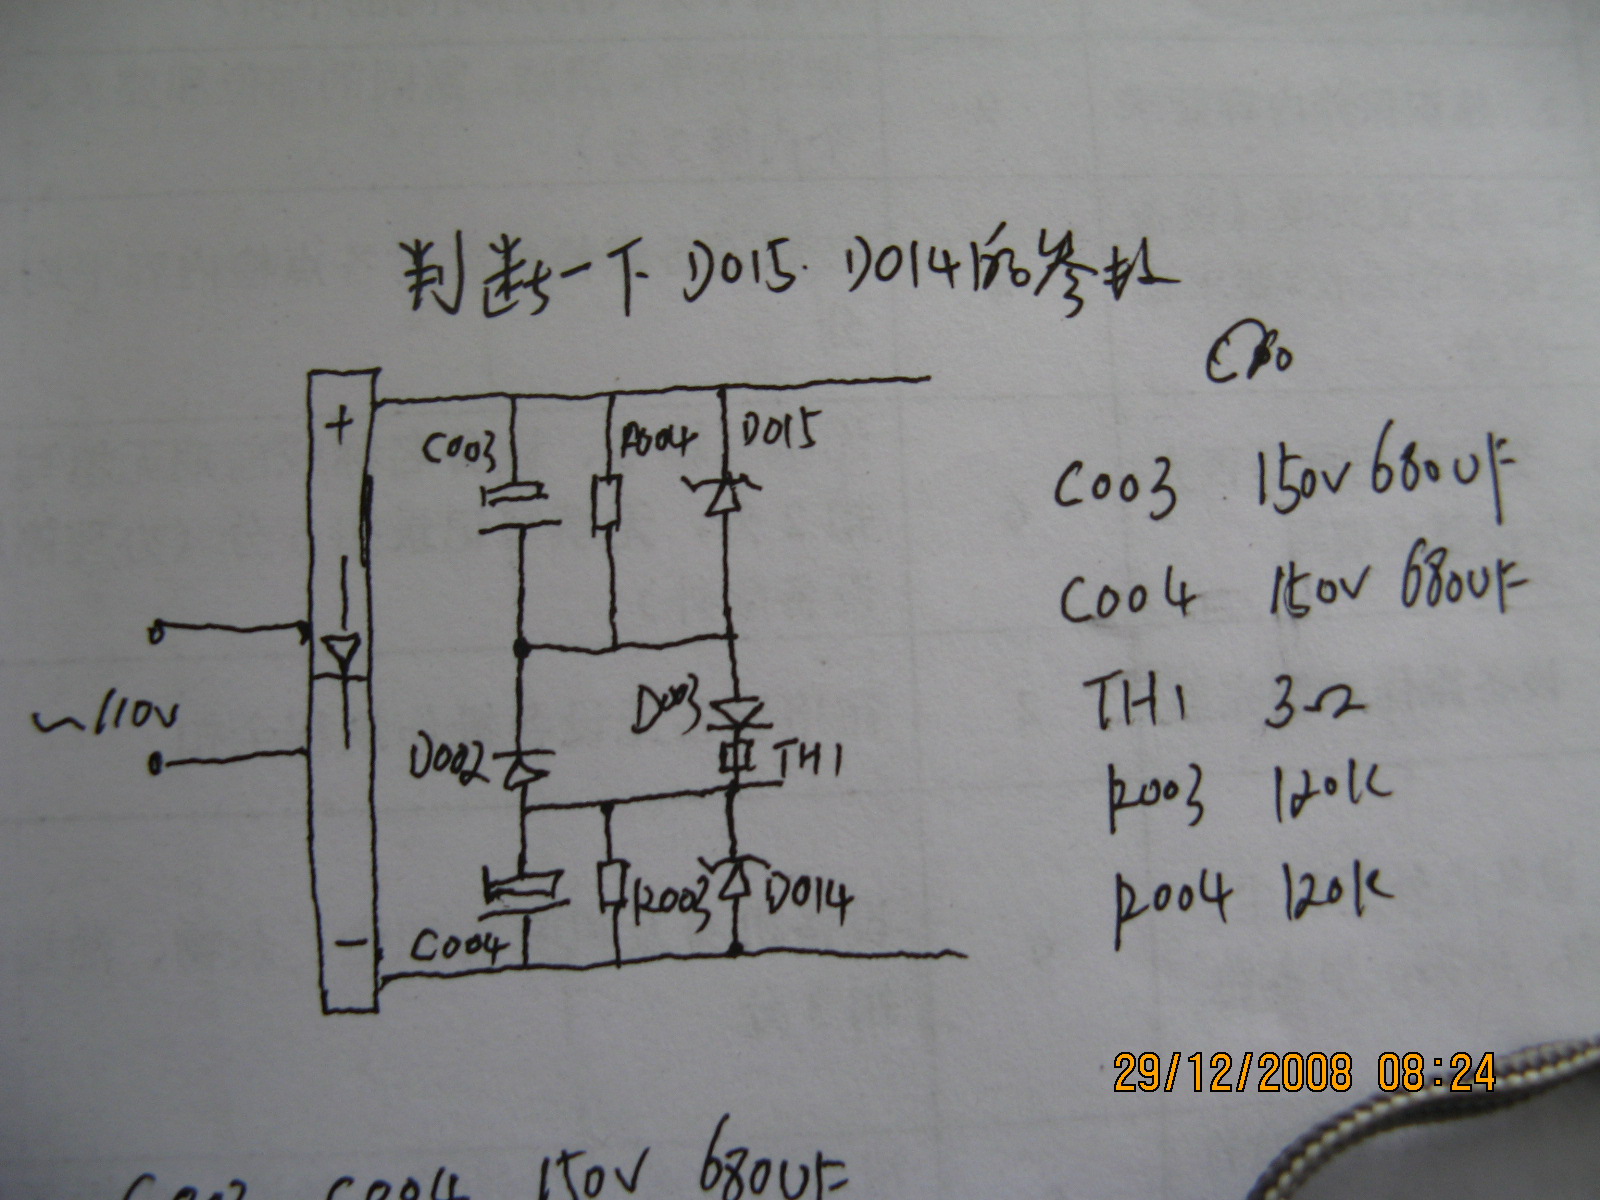 判断一下 D015. D014的参数
C003
R004
D015
+
C003 150V 680UF
C004 150V 680UF
~110V
D003
TH1
D002
TH1 3Ω
R003 120K
R004 120K
C004
R003
D014
-
29/12/2008 08:24
C003 C004 150V 680UF